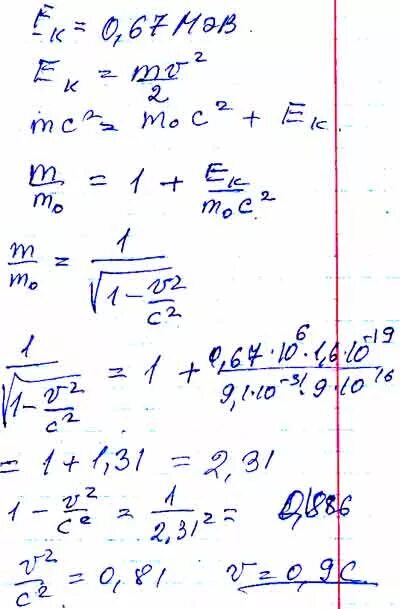 Eк = 0,67 МэВ.
Eк = mv²/2
mc² = m₀c² + Eк
m/m₀ = 1 + Eк/m₀c²
m/m₀ = 1/√(1-v²/c²)
1/√(1-v²/c²) = 1 + 0,67·10⁶·1,6·10⁻¹⁹/9,1·10⁻³¹·9·10¹⁶
= 1 + 1,31 = 2,31
1 - v²/c² = 1/2,31² =
v²/c² = 0,81 v = 0,9c